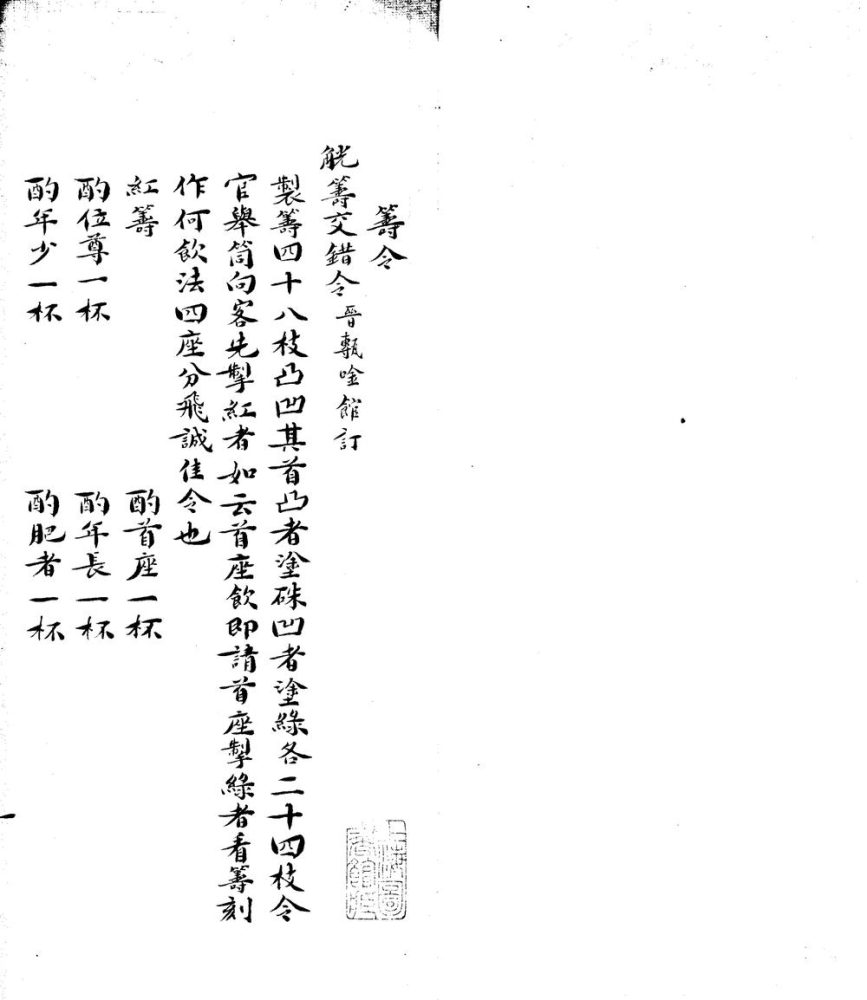 籌令
觥籌交錯令 晉甎唫館訂
製籌四十八枝凸凹其首凸者塗硃凹者塗綠各二十四枝令
官舉筒向客先掣紅者如云首座飲即請首座掣綠者看籌刻
作何飲法四座分飛誠佳令也
紅籌 酌首座一杯
酌位尊一杯 酌年長一杯
酌年少一杯 酌肥者一杯